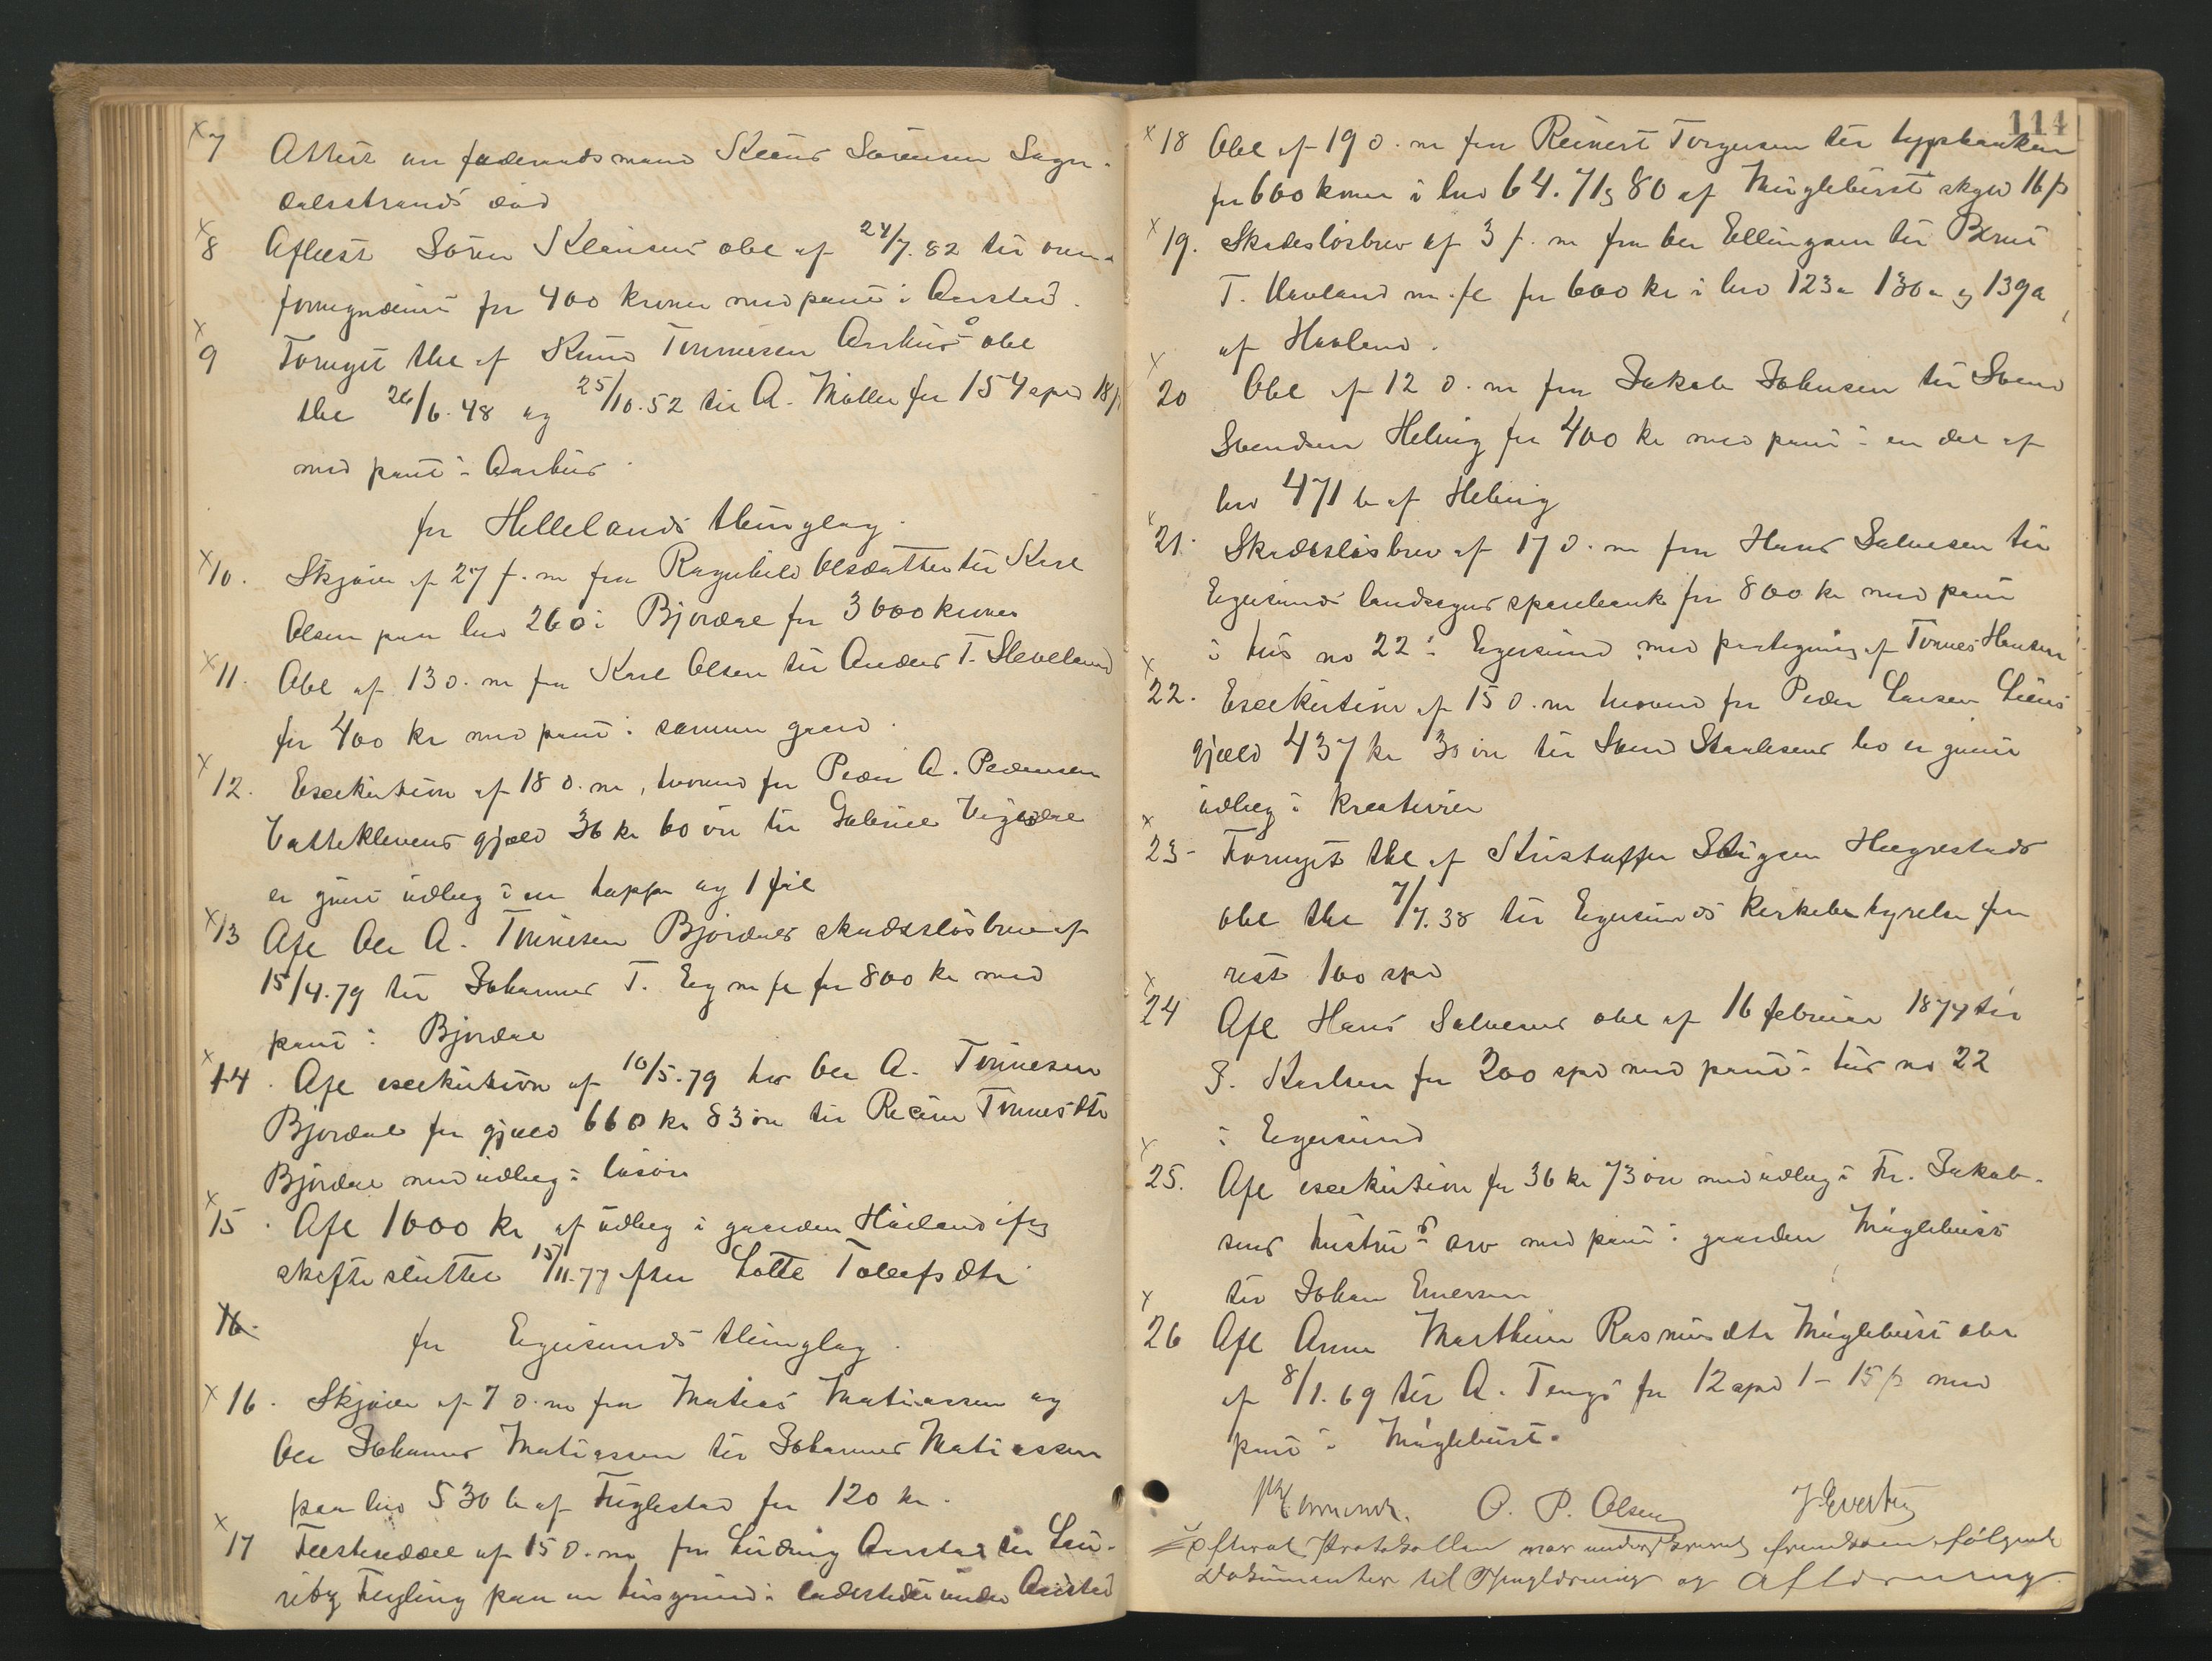 7 Attest om føderaadsmand Klaus Sørensen Sogn-
dalsstrands død
8 Aflæst Søren Klausens obl af 24/7.82 til oven-
fornævnte for 400 kroner med pant i Aarstad.
9 Fornyet thl af Knud Tønnesen Aarhus's obl
thl 26/6.48 og 25/10.52 til A. Møller for 154 spd 18 s
med pant i Aarhus.
for Hellelands thinglag.
10. Skjøde af 27 f. m fra Ragnhild Olsdatter til Karl
Olsen paa lno 260 i Bjordal for 3600 kroner
11. Obl af 13 d. m fra Karl Olsen til Anders T. Sleveland
for 400 kr med pant i samme gaard.
12. Exekution af 18 d. m, hvorved for Peder A. Pedersen
Vatteklevens gjæld 36 kr 60 øre til Gabriel Vigesdal
er gjort udlæg i en hoppe og 1 føl
13 Afl Ole A. Tønnesen Bjordals skadesløsbrev af
15/4.79 til Johannes T. Eeg m fl for 800 kr med
pant i Bjordal
14. Afl exekution af 10/5.79 hos Ole A. Tønnesen
Bjordal for gjæld 660 kr 83 øre til Tønnesdtr
Bjordal med udlæg i løsøre
15. Afl 1000 kr af udlæg i gaarden Hadland ifg
skifte sluttet 15/11.77 efter Lotte Tollefsdtr
16.
for Egersunds thinglag.
16. Skjøde af 7 d. m fra Matias Matiassen og
Ole Johannes Matiassen til Johannes Matiassen
paa lno 530 b af Fuglestad for 120 kr.
17 Fæsteseddel af 15 d. m fra Ludvig Aarstad til
Fugling paa en husgrund i ladestedet under Aarstad
114
18 Obl af 19 d. m fra Reinert Torgersen til hypbanken
for 600 kroner i lno 64. 71 og 80 af Myglebust skyld 16 s
19. Skadesløsbrev af 3 f. m fra Ole Ellingsen til Bernt
T. Havland m. fl for 600 kr i lno 123a 130a og 139a
af Havland.
20 Obl af 12 d. m fra Jakob Johnsen til Svend
Svendsen Helvig for 400 kr med pant i en del af
lno 471 b af Helvig
21. Skadesløsbrev af 17 d. m fra Hans Salvesen til
Egersunds landsogns sparebank for 800 kr med pant
i hus no 22 i Egersund med paategning af Tønnes Hansen
22. Exekution af 15 d. m hvorved for Peder Larsen
gjæld 437 kr 30 øre til Svend Staalesens bo er gjort
udlæg i kreaturer
23. Fornyet thl af Kristoffer Stigsen Hægrestads
obl thl 7/7.38 til Egersunds kirkebestyrelse for
rest 100 spd
24 Afl Hans Salvesens obl af 16 februar 1877 til
S. Karlsen for 200 spd med pant i hus no 22
i Egersund
25. Afl exekution for 36 kr 73 øre med udlæg i Fr. Jakob-
sens hustru's arv med pant i gaarden Myglebust
til Johan Emersen
26 Afl Anne Marthine Rasmusdtr Myglebust obl
af 8/1.69 til A. Tengs for 12 spd 1 - 15 s med
pant i Myglebust.
O. P. Olsen J. Evertz
Efterat Protokollen var underskrevet fremkom følgende
Dokumenter til Thinglæsning og Aflæsning.